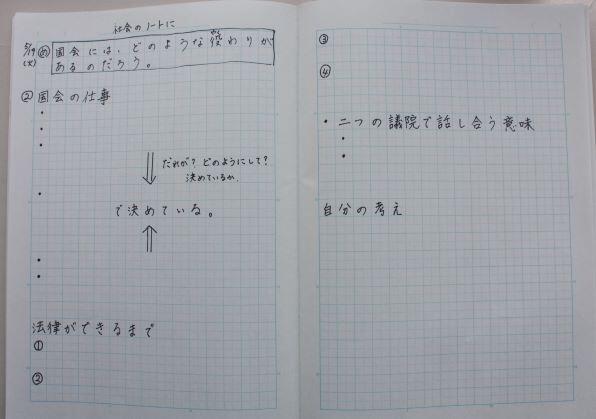 社会のノートに
5/19(火) め 国会には、どのような役わりが
あるのだろう。
② 国会の仕事
・
・
・
だれが？どのようにして？
決めているか.
・
で決めている。
・
・
法律ができるまで
①
②
③
④
・二つの議院で話し合う意味
・
・
自分の考え